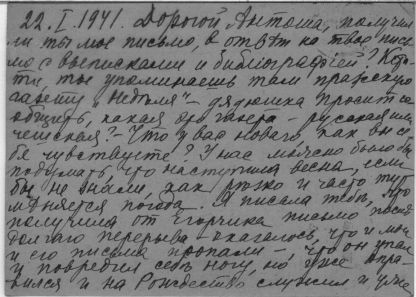 22.I.1941. Дорогой Антоша, получи-
ли ты мое письмо, в ответ на твое пись-
мо с выписками и библиографией? Кста-
ти ты упоминаешь там пражскую
газету "Недѣля" – дядюшка просит со-
общить, какая это газета – русская или
чешская? – Что у вас нового, как вы се-
бя чувствуете? У нас можно было бы
подумать, что наступила весна, если
бы не знали, как рѣзко и часто тут
мѣняется погода. Я писала тебѣ, что
получила от Егорчика письмо послѣ
долгаго перерыва – оказалось, что и мои
и его письма пропали – что он упал
и повредил себѣ ногу, но уже опра-
вился и на Рождество служил и